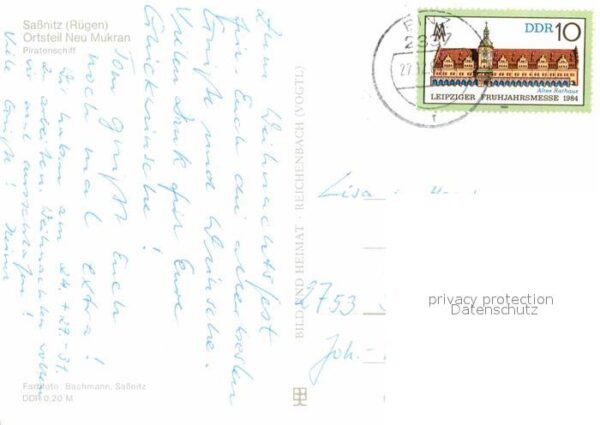 Saßnitz (Rügen)
Ortsteil Neu Mukran
Piratenschiff
Zum Weihnachtsfest
für Euch die allerbesten
Grüße und Wünsche.
Vielen Dank für Eure
Glückwünsche!
Tom grüßt Euch
noch mal extra!
Wir haben am 24. + 29.-31.
zu arbeiten. Weihnachten wollen
wir mal ausschlafen!
Viele Grüße!
BILD UND HEIMAT · REICHENBACH (VOGTL)
Farbfoto: Bachmann, Saßnitz
DDR 0,20 M
2337
27.12
DDR 10
Altes Rathaus
LEIPZIGER FRÜHJAHRSMESSE 1984
Lisa
2753
Joh.-
privacy protection
Datenschutz